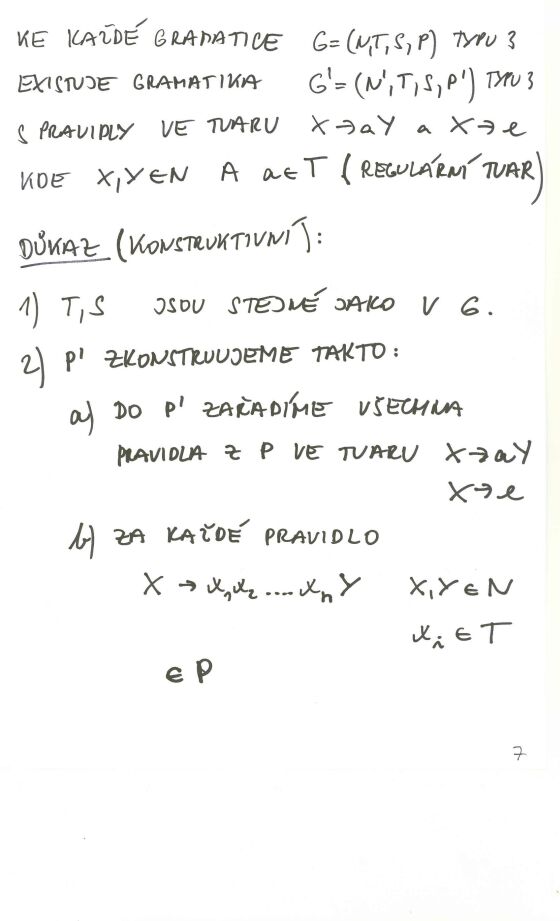 KE KAŽDÉ GRAMATICE G=(N,T,S,P) TYPU 3
EXISTUJE GRAMATIKA G'=(N',T,S,P') TYPU 3
S PRAVIDLY VE TVARU X→aY a X→e
KDE X,Y∈N A a∈T (REGULÁRNÍ TVAR)
DŮKAZ (KONSTRUKTIVNÍ):
1) T,S JSOU STEJNÉ JAKO V G.
2) P' ZKONSTRUUJEME TAKTO:
a) DO P' ZAŘADÍME VŠECHNA
PRAVIDLA Z P VE TVARU X→aY
X→e
b) ZA KAŽDÉ PRAVIDLO
X → x₁x₂....xₙY X,Y∈N
xᵢ ∈ T
∈ P
7